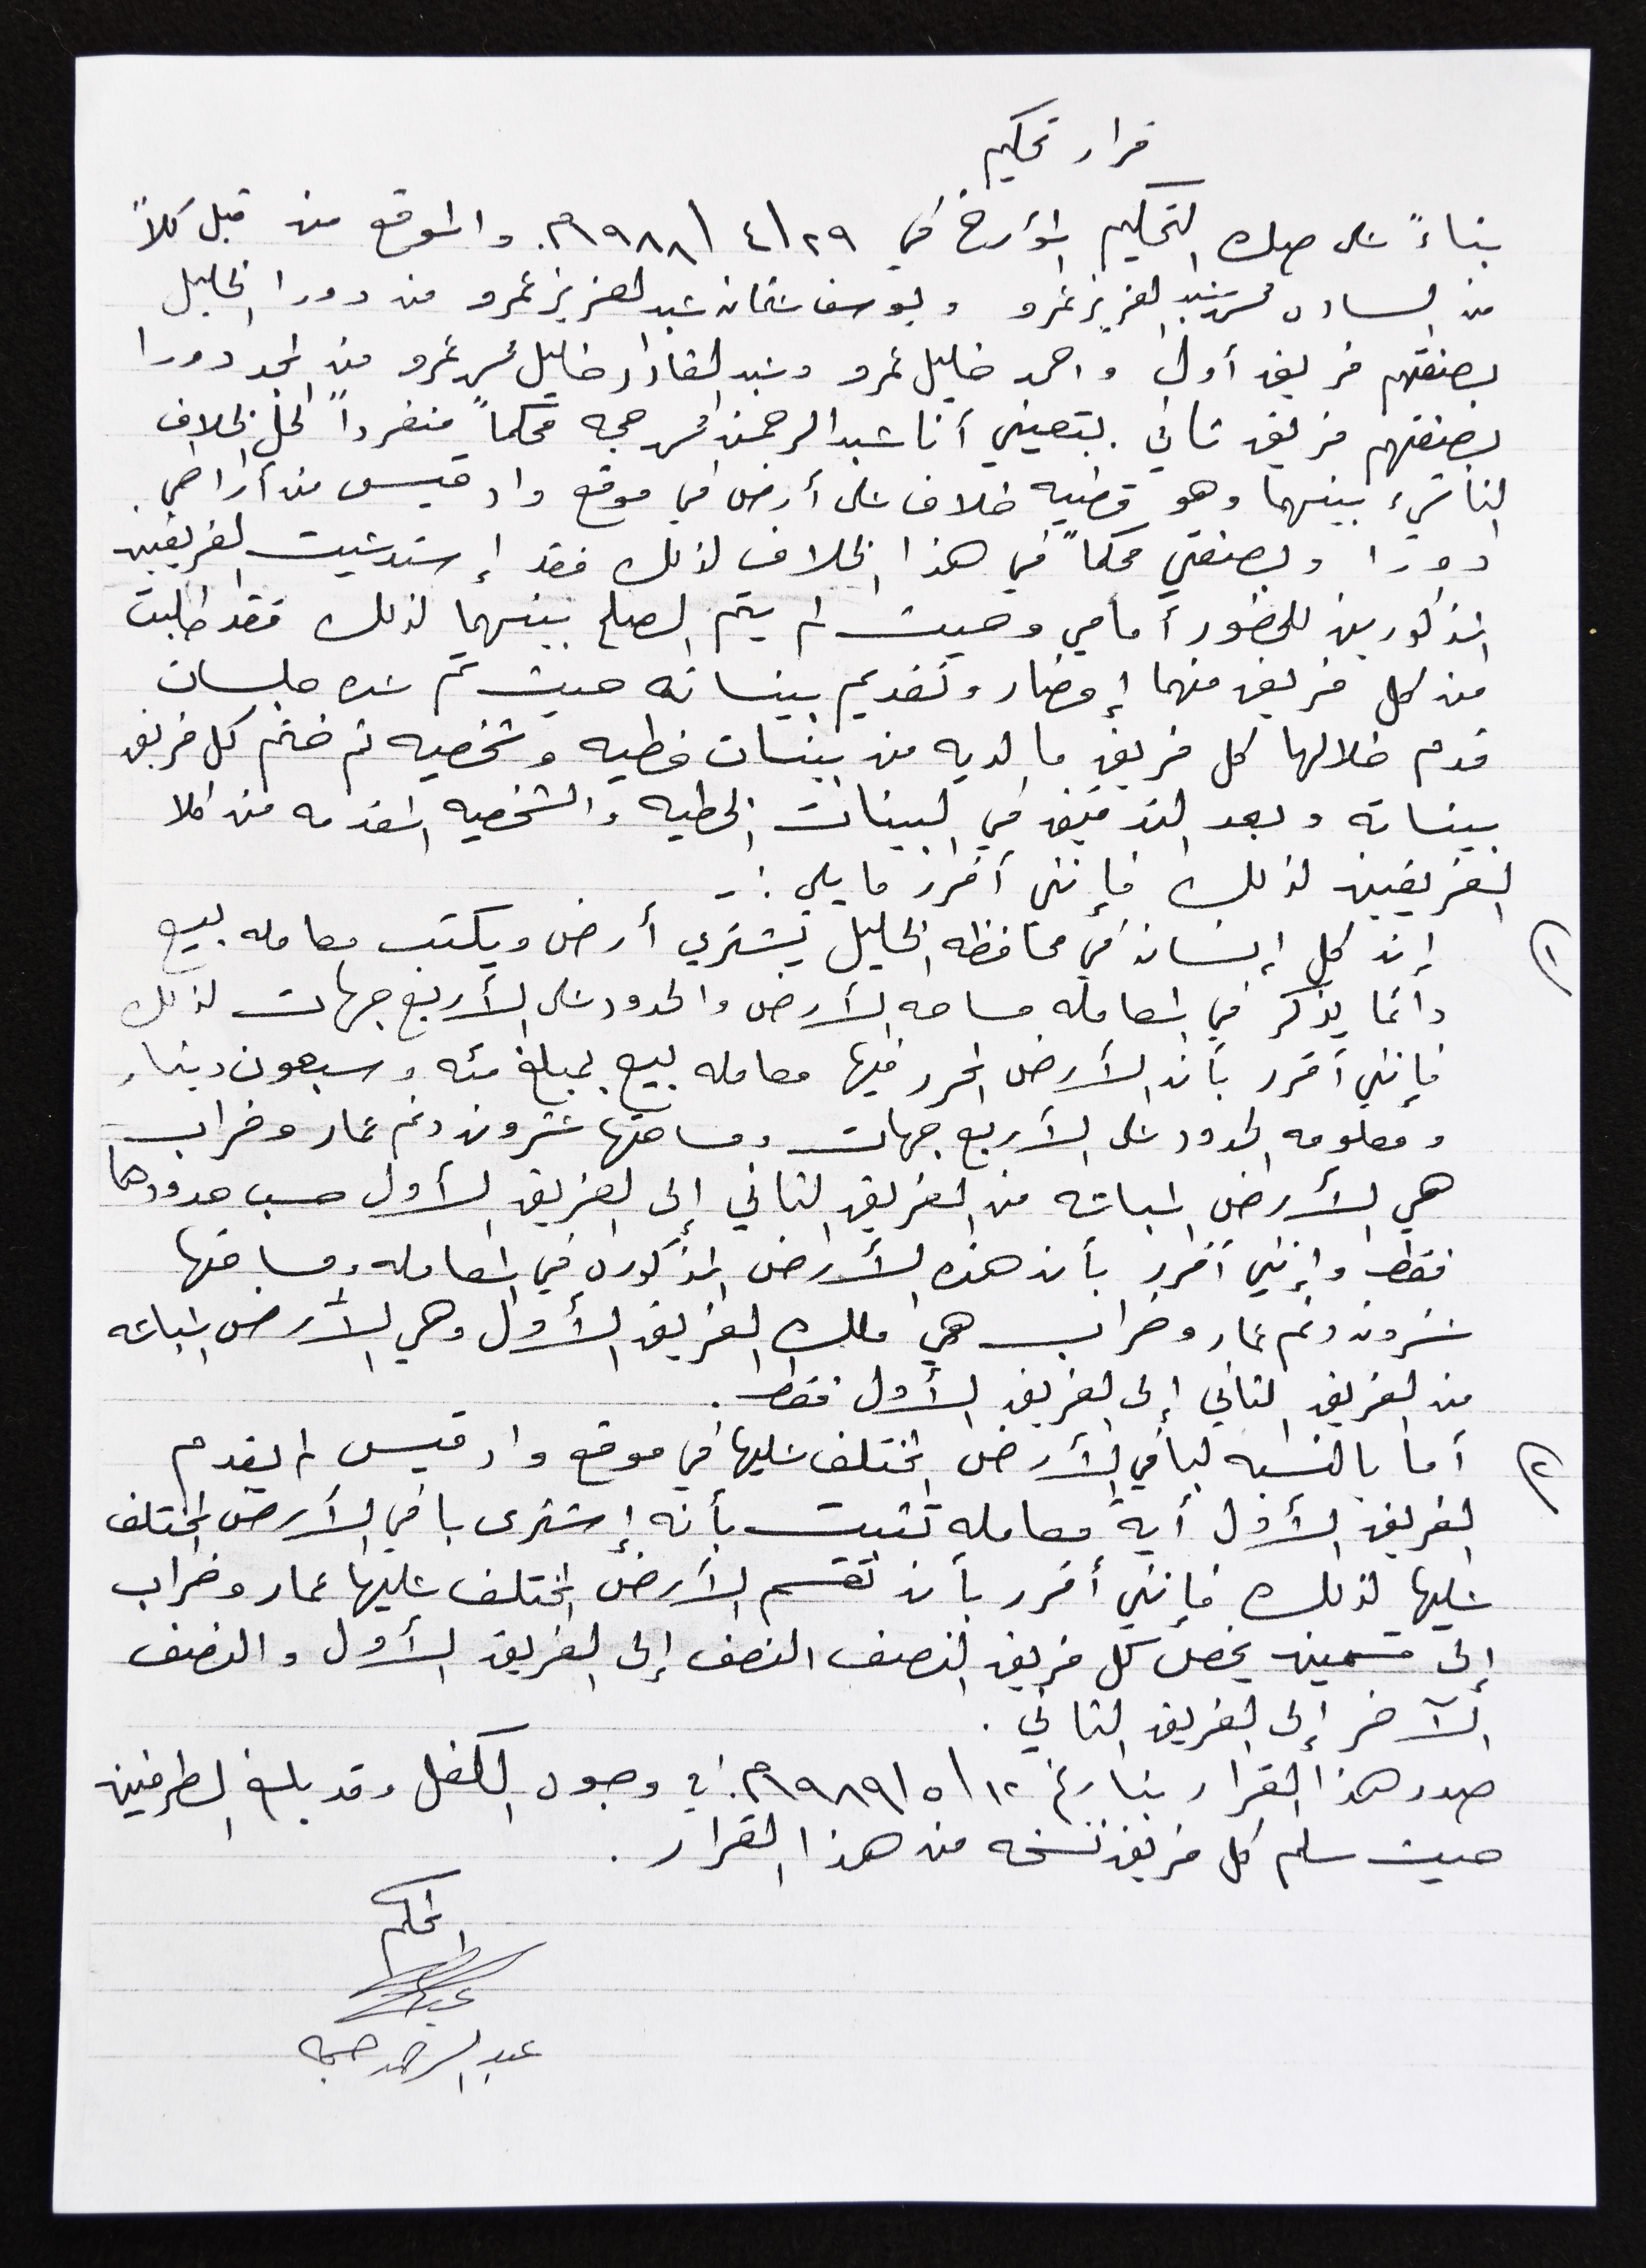 قرار تحكيم
بناءً على صك التحكيم المؤرخ في ٢٩/٤/١٩٨٨م. والموقع من قبل كلاً
من الساده محمد عبد العزيز عمرو ويوسف عثمان عبد العزيز عمرو من دورا الخليل
بصفتهم فريق أول واحمد خليل عمرو وعبد القادر خليل محمد عمرو من المجد دورا
بصفتهم فريق ثاني. بتعييني أنا عبد الرحمن محمد حجه محكماً منفرداً لحل الخلاف
الناشيء بينهما وهو قضيه خلاف على أرض في موقع واد قيس من أراضي
دورا وبصفتي محكماً في هذا الخلاف لذلك فقد إستدعيت الفريقين
المذكورين للحضور أمامي وحيث لم يتم الصلح بينهما لذلك فقد طلبت
من كل فريق منهما إحضار وتقديم بيناته حيث تم عده جلسات
قدم خلالها كل فريق ما لديه من بينات خطيه وشخصيه ثم ختم كل فريق
بيناته وبعد التدقيق في البينات الخطيه والشخصيه المقدمه من كلا
الفريقين لذلك فإنني أقرر ما يلي :-
١) إن كل إنسان في محافظه الخليل يشتري أرض ويكتب معامله بيع
دائما يذكر في المعامله مساحه الأرض والحدود على الأربع جهات لذلك
فإنني أقرر بأن الأرض المحرر فيها معامله بيع بمبلغ مئه وسبعون دينار
ومعلومه الحدود على الأربع جهات ومساحتها عشرون دنم عمار وخراب
هي الأرض المباعه من الفريق الثاني إلى الفريق الأول حسب حدودها
فقط وإنني أقرر بأن هذه الأرض المذكوره في المعامله ومساحتها
عشرون دنم عمار وخراب هي ملك الفريق الأول وهي الأرض المباعه
من الفريق الثاني إلى الفريق الأول فقط.
٢) أما بالنسبه لباقي الأرض المختلف عليها في موقع واد قيس لم يقدم
الفريق الأول أية معامله تثبت بأنه إشترى باقي الأرض المختلف
عليها لذلك فإنني أقرر بأن تقسم الأرض المختلف عليها عمار وخراب
إلى قسمين يخص كل فريق النصف النصف إلى الفريق الأول والنصف
الآخر إلى الفريق الثاني.
صدر هذا القرار بتاريخ ١٢/٥/١٩٨٩م. في وجود الكفل وقد بلغ الطرفين
حيث سلم كل فريق نسخه من هذا القرار.
المحكم
عبد الرحمن حجه